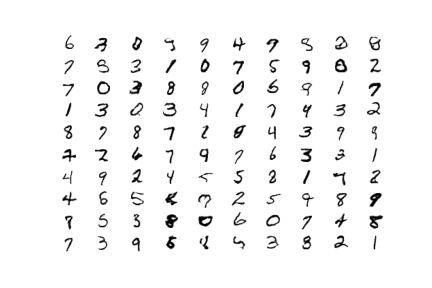 6 3 0 9 9 4 7 5 2 8
7 5 3 1 0 7 5 9 8 2
7 0 3 8 8 0 6 9 1 7
1 3 0 3 4 1 7 4 3 2
8 7 8 7 2 8 4 3 9 9
7 2 6 7 9 7 6 3 3 1
4 9 2 4 5 5 8 1 7 2
4 6 5 7 2 5 9 8 9
8 5 3 8 0 6 0 7 4 8
7 3 9 5 5 3 8 2 1